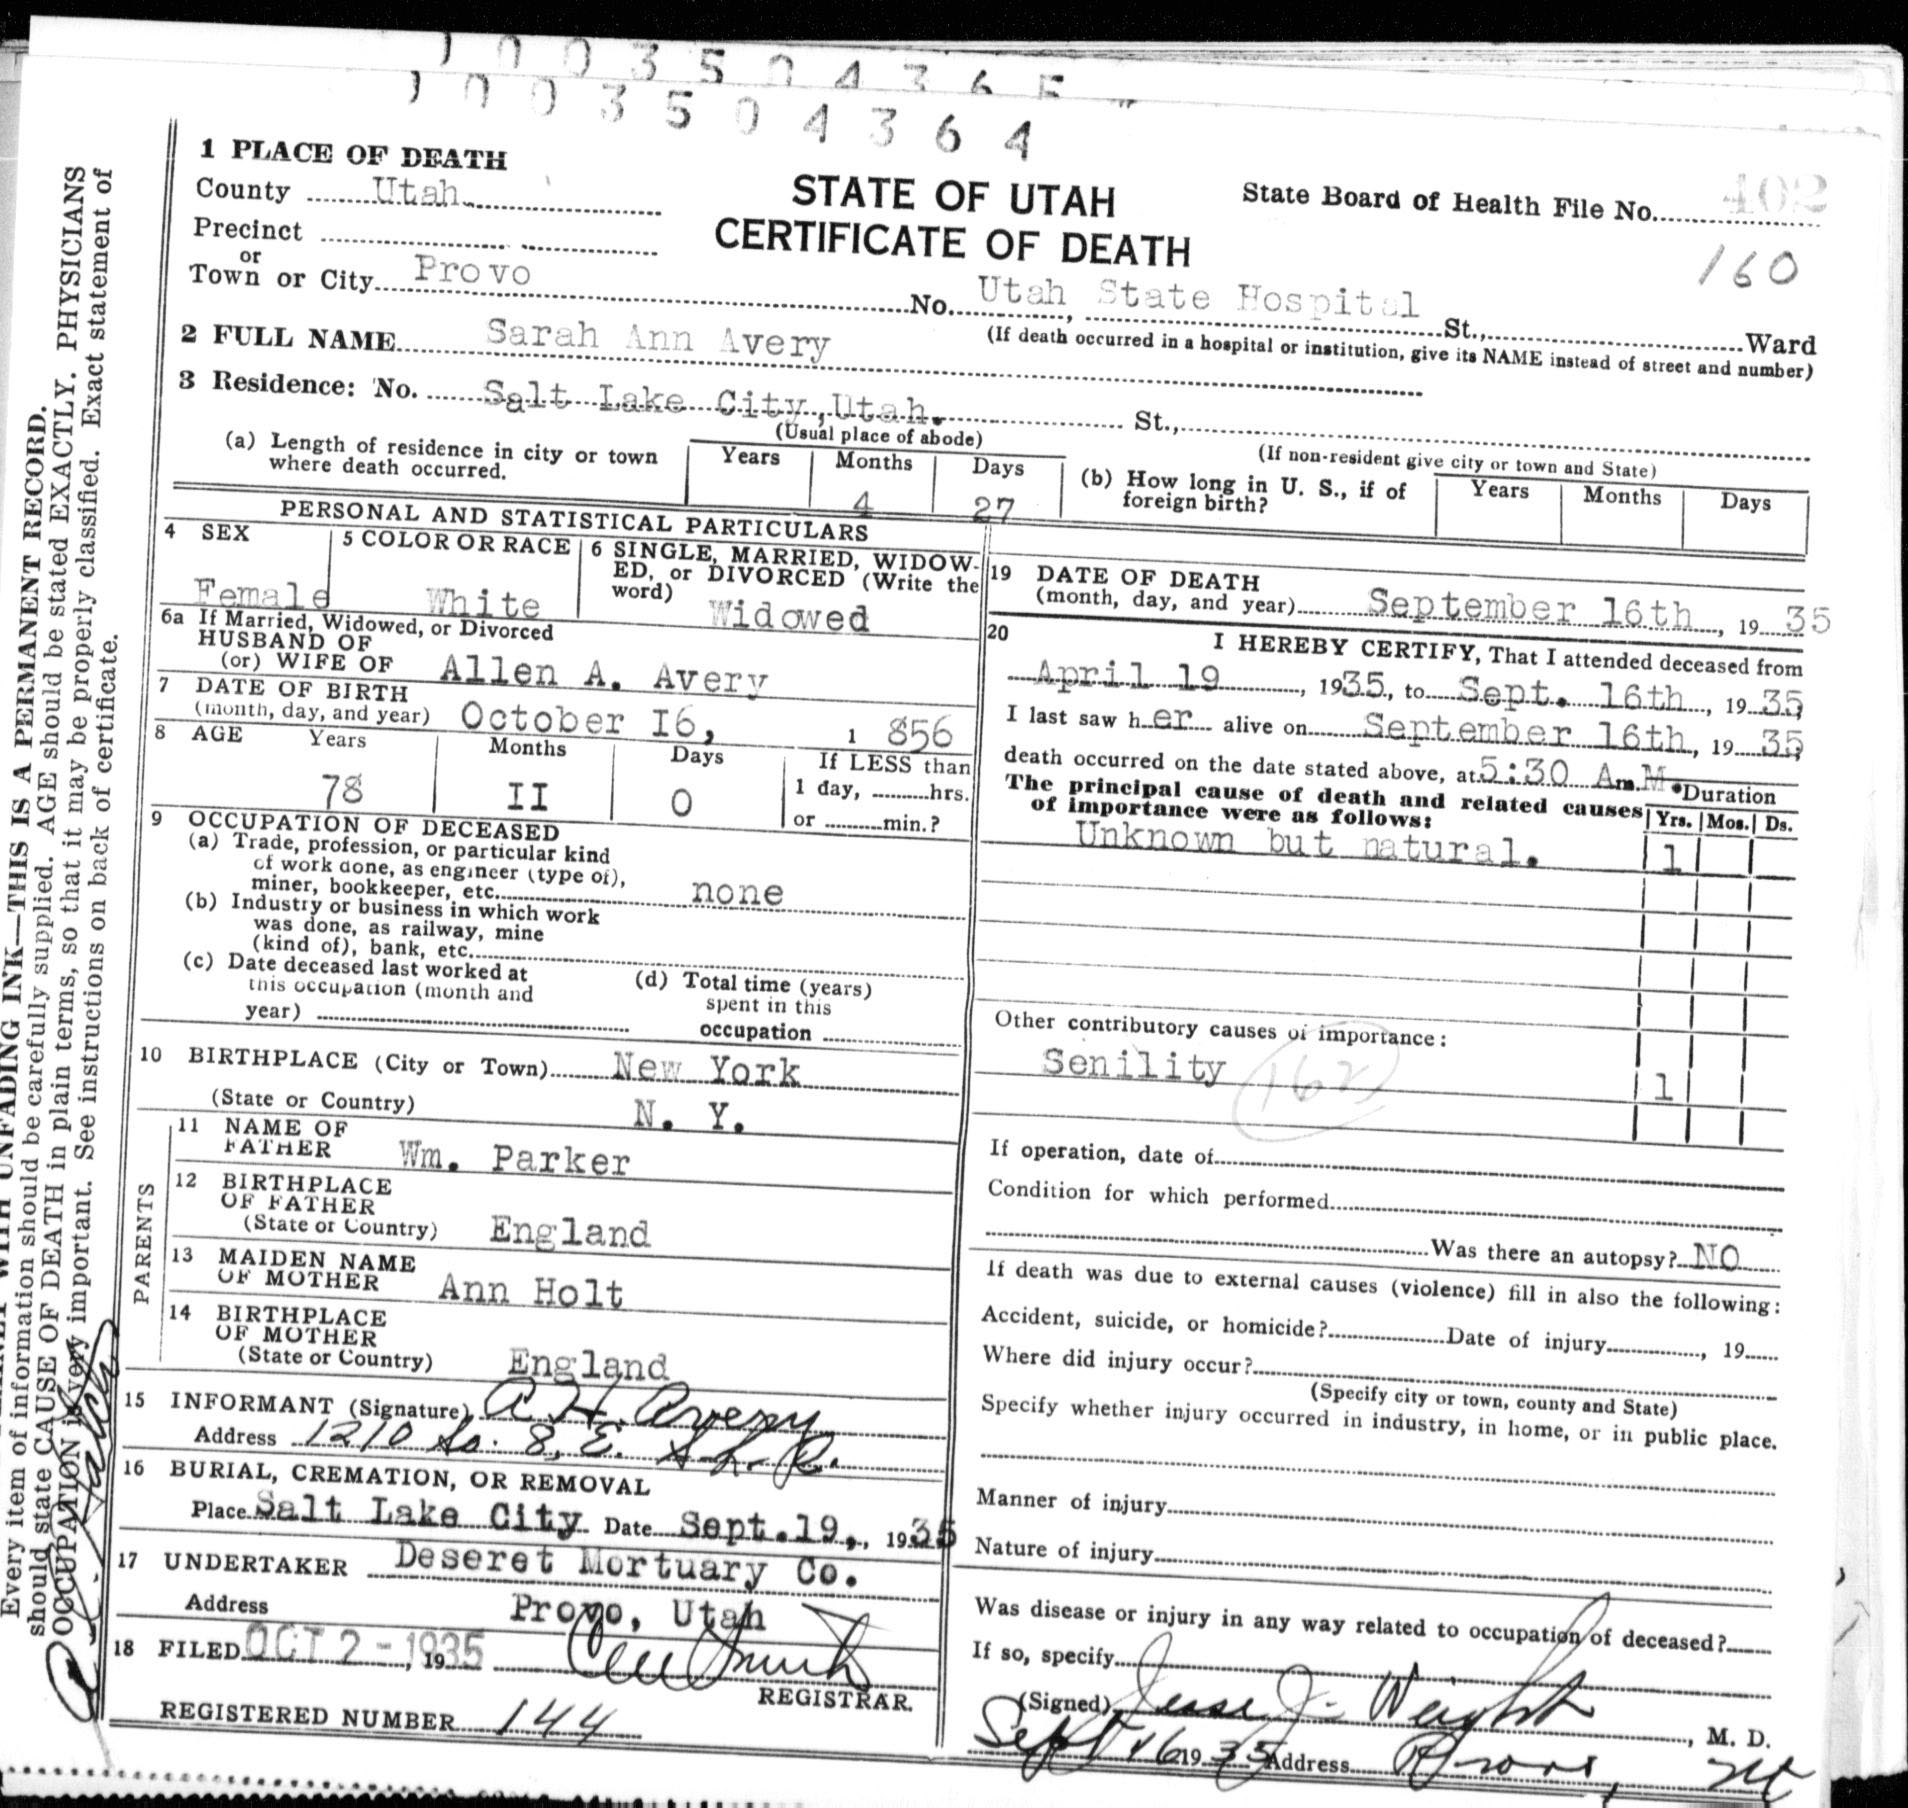 1003504365
1003504364
1 PLACE OF DEATH
County Utah
Precinct
or
Town or City Provo
STATE OF UTAH
CERTIFICATE OF DEATH
State Board of Health File No. 402
160
No. Utah State Hospital St., Ward
(If death occurred in a hospital or institution, give its NAME instead of street and number)
2 FULL NAME Sarah Ann Avery
3 Residence: No. Salt Lake City, Utah. St.,
(Usual place of abode)
(If non-resident give city or town and State)
(a) Length of residence in city or town
where death occurred.
Years Months Days
4 27
(b) How long in U. S., if of
foreign birth?
Years Months Days
PERSONAL AND STATISTICAL PARTICULARS
4 SEX
Female
5 COLOR OR RACE
White
6 SINGLE, MARRIED, WIDOW-
ED, or DIVORCED (Write the
word) Widowed
6a If Married, Widowed, or Divorced
HUSBAND OF
(or) WIFE OF Allen A. Avery
7 DATE OF BIRTH
(month, day, and year) October I6, 1 856
8 AGE Years Months Days If LESS than
78 II 0 1 day, hrs.
or min.?
9 OCCUPATION OF DECEASED
(a) Trade, profession, or particular kind
of work done, as engineer (type of),
miner, bookkeeper, etc. none
(b) Industry or business in which work
was done, as railway, mine
(kind of), bank, etc.
(c) Date deceased last worked at
this occupation (month and
year)
(d) Total time (years)
spent in this
occupation
10 BIRTHPLACE (City or Town) New York
(State or Country) N. Y.
PARENTS
11 NAME OF
FATHER Wm. Parker
12 BIRTHPLACE
OF FATHER
(State or Country) England
13 MAIDEN NAME
OF MOTHER Ann Holt
14 BIRTHPLACE
OF MOTHER
(State or Country) England
15 INFORMANT (Signature) A H Avery
Address 1210 So. 8, E. S. L. C.
16 BURIAL, CREMATION, OR REMOVAL
Place Salt Lake City Date Sept. 19, 1935
17 UNDERTAKER Deseret Mortuary Co.
Address Provo, Utah
18 FILED OCT 2 - 1935, 19
REGISTRAR.
REGISTERED NUMBER 144
19 DATE OF DEATH
(month, day, and year) September 16th, 1935
20 I HEREBY CERTIFY, That I attended deceased from
April 19, 1935, to Sept. 16th, 1935,
I last saw her alive on September 16th, 1935,
death occurred on the date stated above, at 5:30 A.m. M.
The principal cause of death and related causes
of importance were as follows:
Duration
Yrs. Mos. Ds.
Unknown but natural. 1
Other contributory causes of importance:
Senility 1
162
If operation, date of
Condition for which performed
Was there an autopsy? NO
If death was due to external causes (violence) fill in also the following:
Accident, suicide, or homicide? Date of injury, 19
Where did injury occur?
(Specify city or town, county and State)
Specify whether injury occurred in industry, in home, or in public place.
Manner of injury
Nature of injury
Was disease or injury in any way related to occupation of deceased?
If so, specify
(Signed) Jesse J. Weight, M. D.
Sept 16 1935 Address Provo, Ut
WITH UNFADING INK—THIS IS A PERMANENT RECORD.
Every item of information should be carefully supplied. AGE should be stated EXACTLY. PHYSICIANS
should state CAUSE OF DEATH in plain terms, so that it may be properly classified. Exact statement of
OCCUPATION is very important. See instructions on back of certificate.